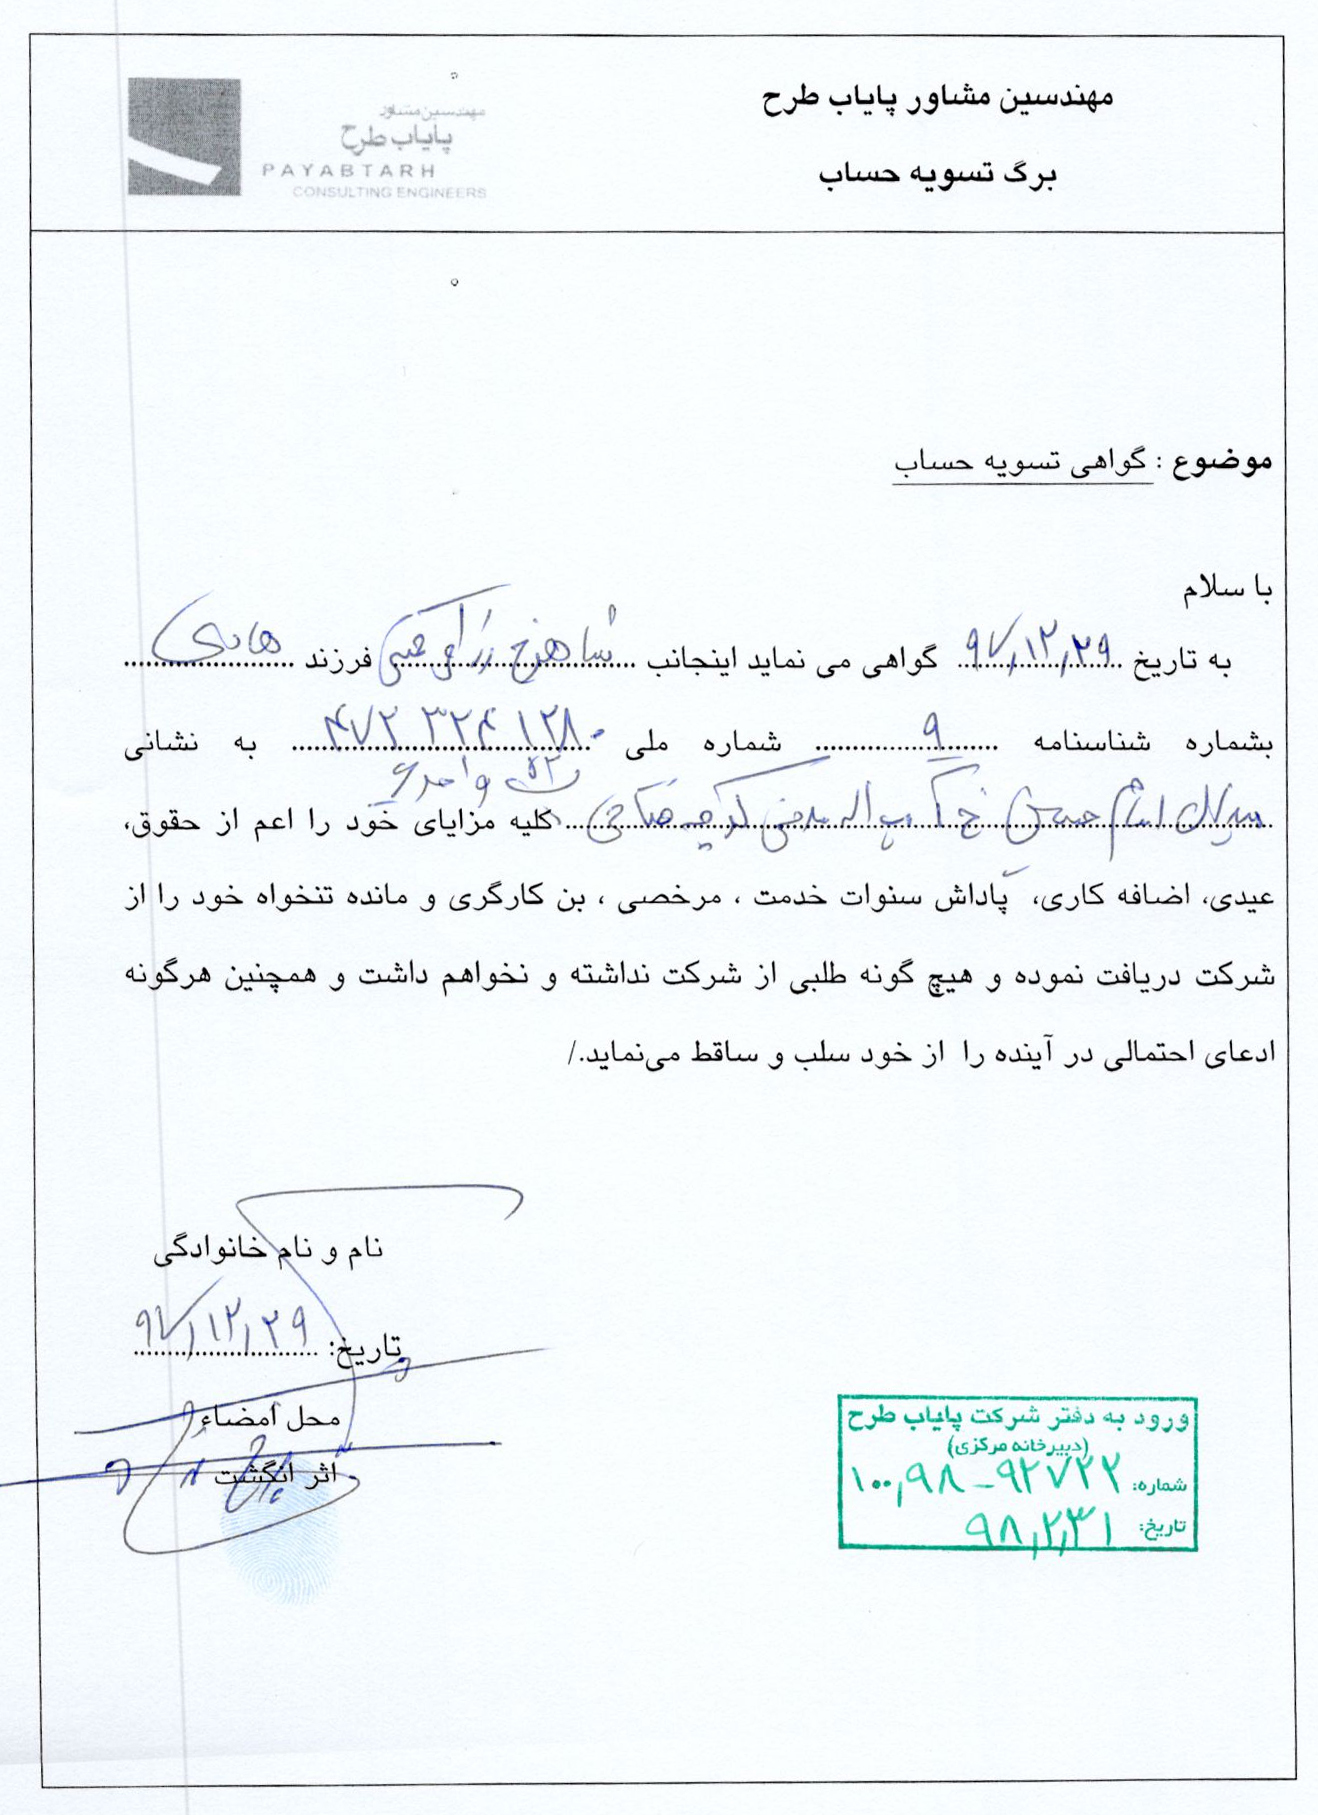 مهندسین مشاور پایاب طرح
برگ تسویه حساب
مهندسین مشاور
پایاب طرح
PAYABTARH
CONSULTING ENGINEERS
موضوع : گواهی تسویه حساب
با سلام
به تاریخ ۹۷,۱۲,۲۹ گواهی می نماید اینجانب شاهرخ فرزند هادی
بشماره شناسنامه ۹ شماره ملی به نشانی
واحد ۶
میدان امام حسین خ کلیه مزایای خود را اعم از حقوق،
عیدی، اضافه کاری، پاداش سنوات خدمت ، مرخصی ، بن کارگری و مانده تنخواه خود را از
شرکت دریافت نموده و هیچ گونه طلبی از شرکت نداشته و نخواهم داشت و همچنین هرگونه
ادعای احتمالی در آینده را از خود سلب و ساقط می‌نماید./
نام و نام خانوادگی
تاریخ: ۹۷,۱۲,۲۹
محل امضاء
اثر انگشت
ورود به دفتر شرکت پایاب طرح
(دبیرخانه مرکزی)
شماره: ۱۰۰,۹۸-۹۲۷۲۲
تاریخ: ۹۸,۲,۳۱